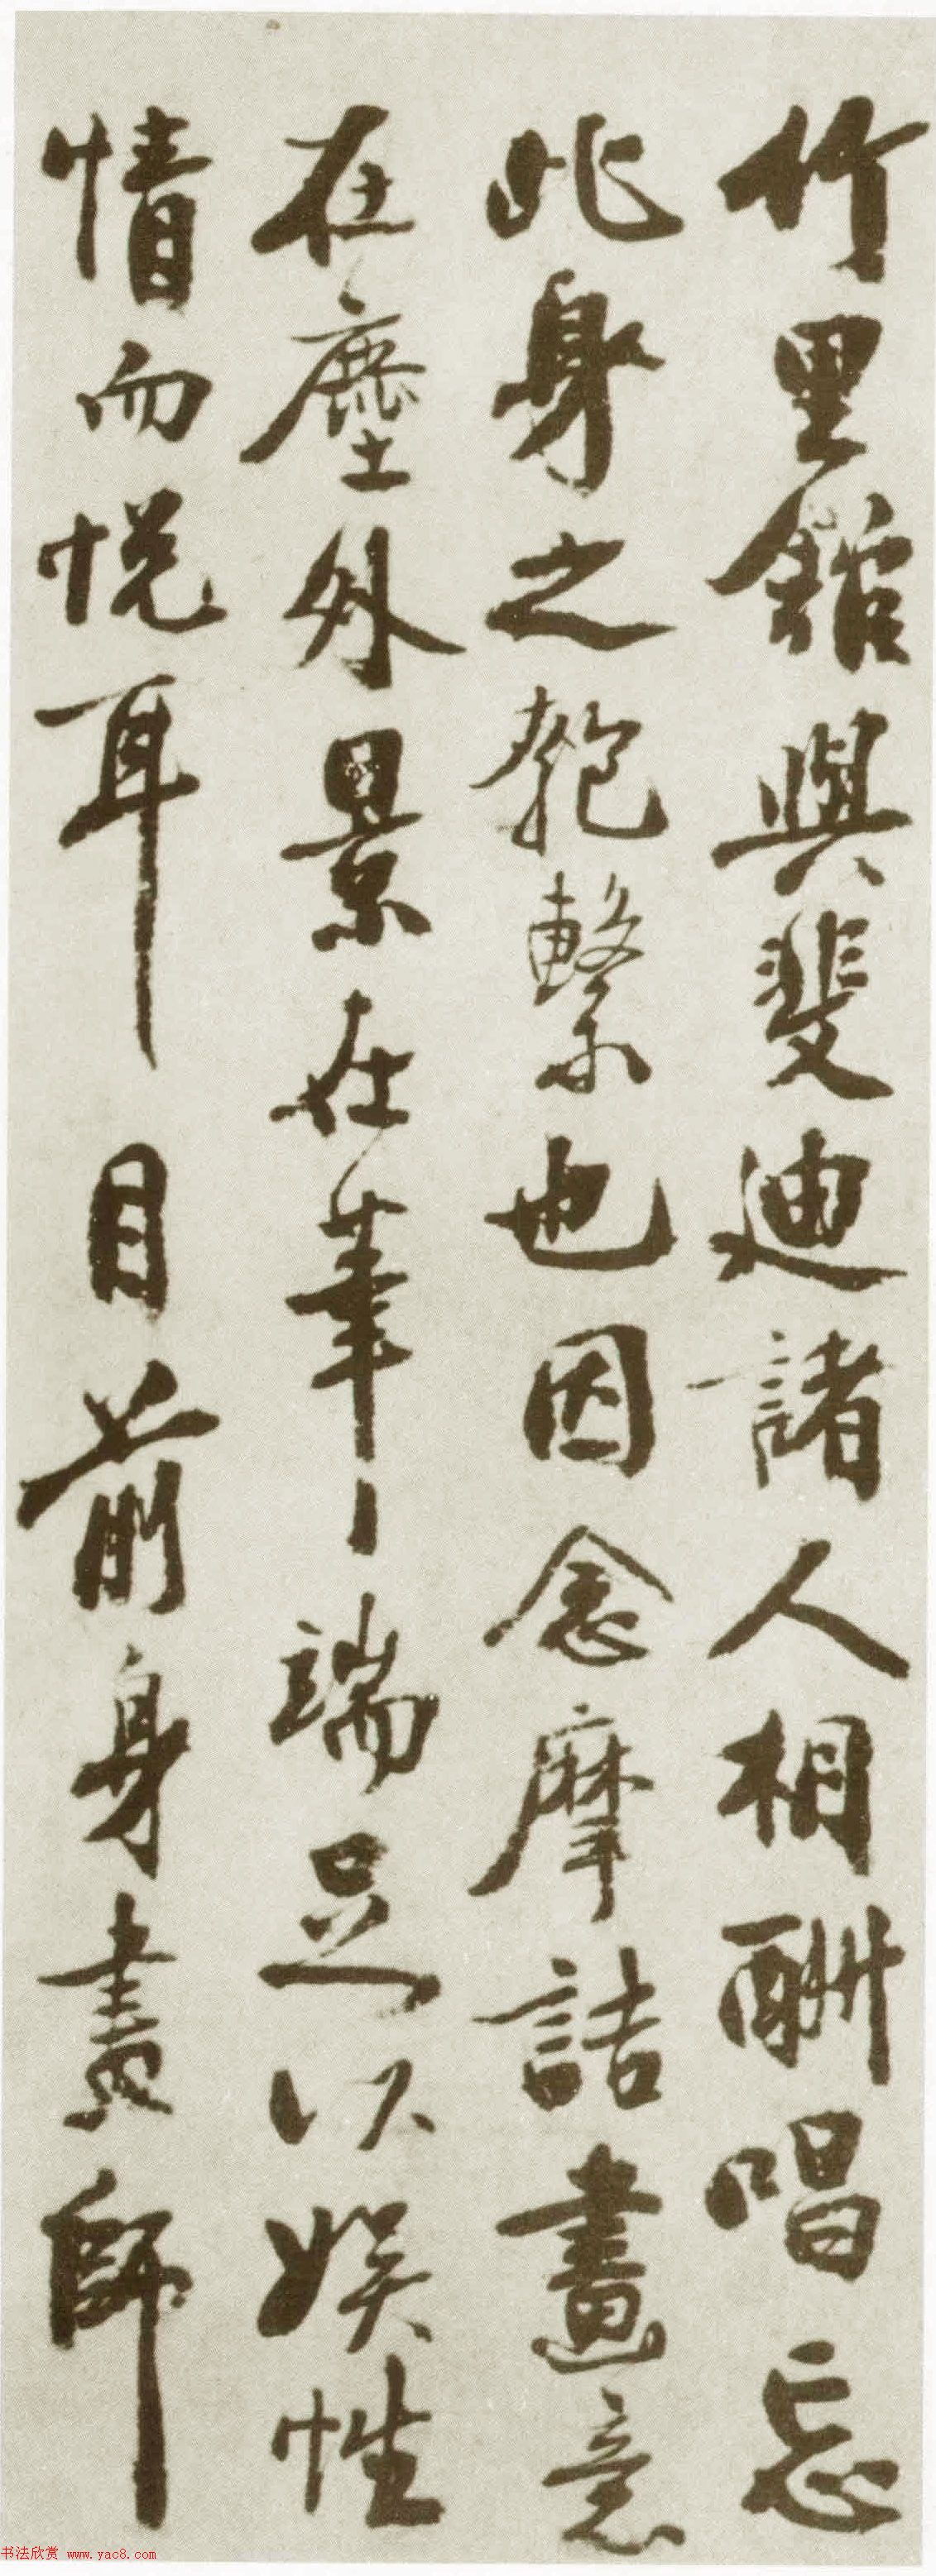 竹里館與斐迪諸人相酬唱忘
此身之匏繫也因念摩詰畫意
在塵外景在筆端足以娛性
情而悅耳目前身畫師
书法欣赏 www.yac8.com